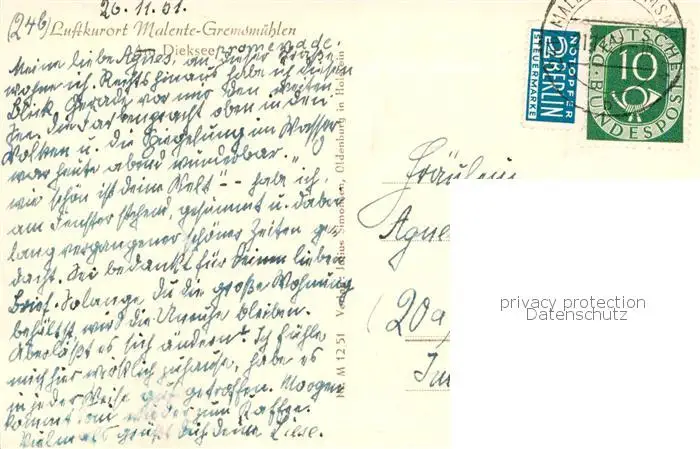 26.11.51.
(24b) Luftkurort Malente-Gremsmühlen
Am Diekseepromenade.
Meine liebe Agnes, an dieser Straße
wohne ich. Rechts hinaus habe ich diesen
Blick, gerade vor mir den
See. Die Farbenpracht oben in den
Wolken u. die Spiegelung im Wasser
war heute abend wunderbar. "O
wie schön ist deine Welt" - hab ich,
am Fenster stehend, gesummt u. dabei
lang vergangener schöner Zeiten ge-
dacht. Sei bedankt für Deinen lieben
Brief. Solange Du die große Wohnung
behältst wird die Unruhe bleiben.
Überläßt es sich ändern? Ich fühle
mich hier wirklich zuhause, habe es
in jeder Weise gut getroffen. Morgen
kommt wieder zum Kaffee.
Vielmals grüßt Dich Deine Liese.
M 12 51 Verlag: Julius Simonsen, Oldenburg in Holstein
2 NOTOPFER
BERLIN
STEUERMARKE
DEUTSCHE
10
BUNDESPOST
Fräulein
Agnes
(20a)
privacy protection
Datenschutz